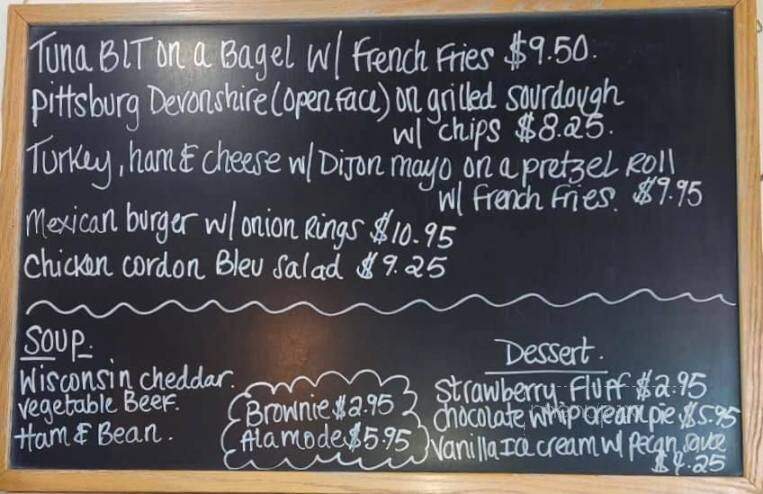 Tuna BLT on a Bagel w/ French Fries $9.50.
Pittsburg Devonshire (open face) on grilled sourdough
w/ chips $8.25.
Turkey, ham & cheese w/ Dijon mayo on a pretzel Roll
w/ French Fries. $9.95
Mexican burger w/ onion Rings $10.95
Chicken cordon Bleu Salad $9.25
Soup.
Wisconsin cheddar.
vegetable Beef.
Ham & Bean.
Brownie $2.95
Alamode $5.95
Dessert.
Strawberry Fluff $2.95
chocolate whip cream pie $5.95
Vanilla Ice cream w/ pecan sauce
$4.25